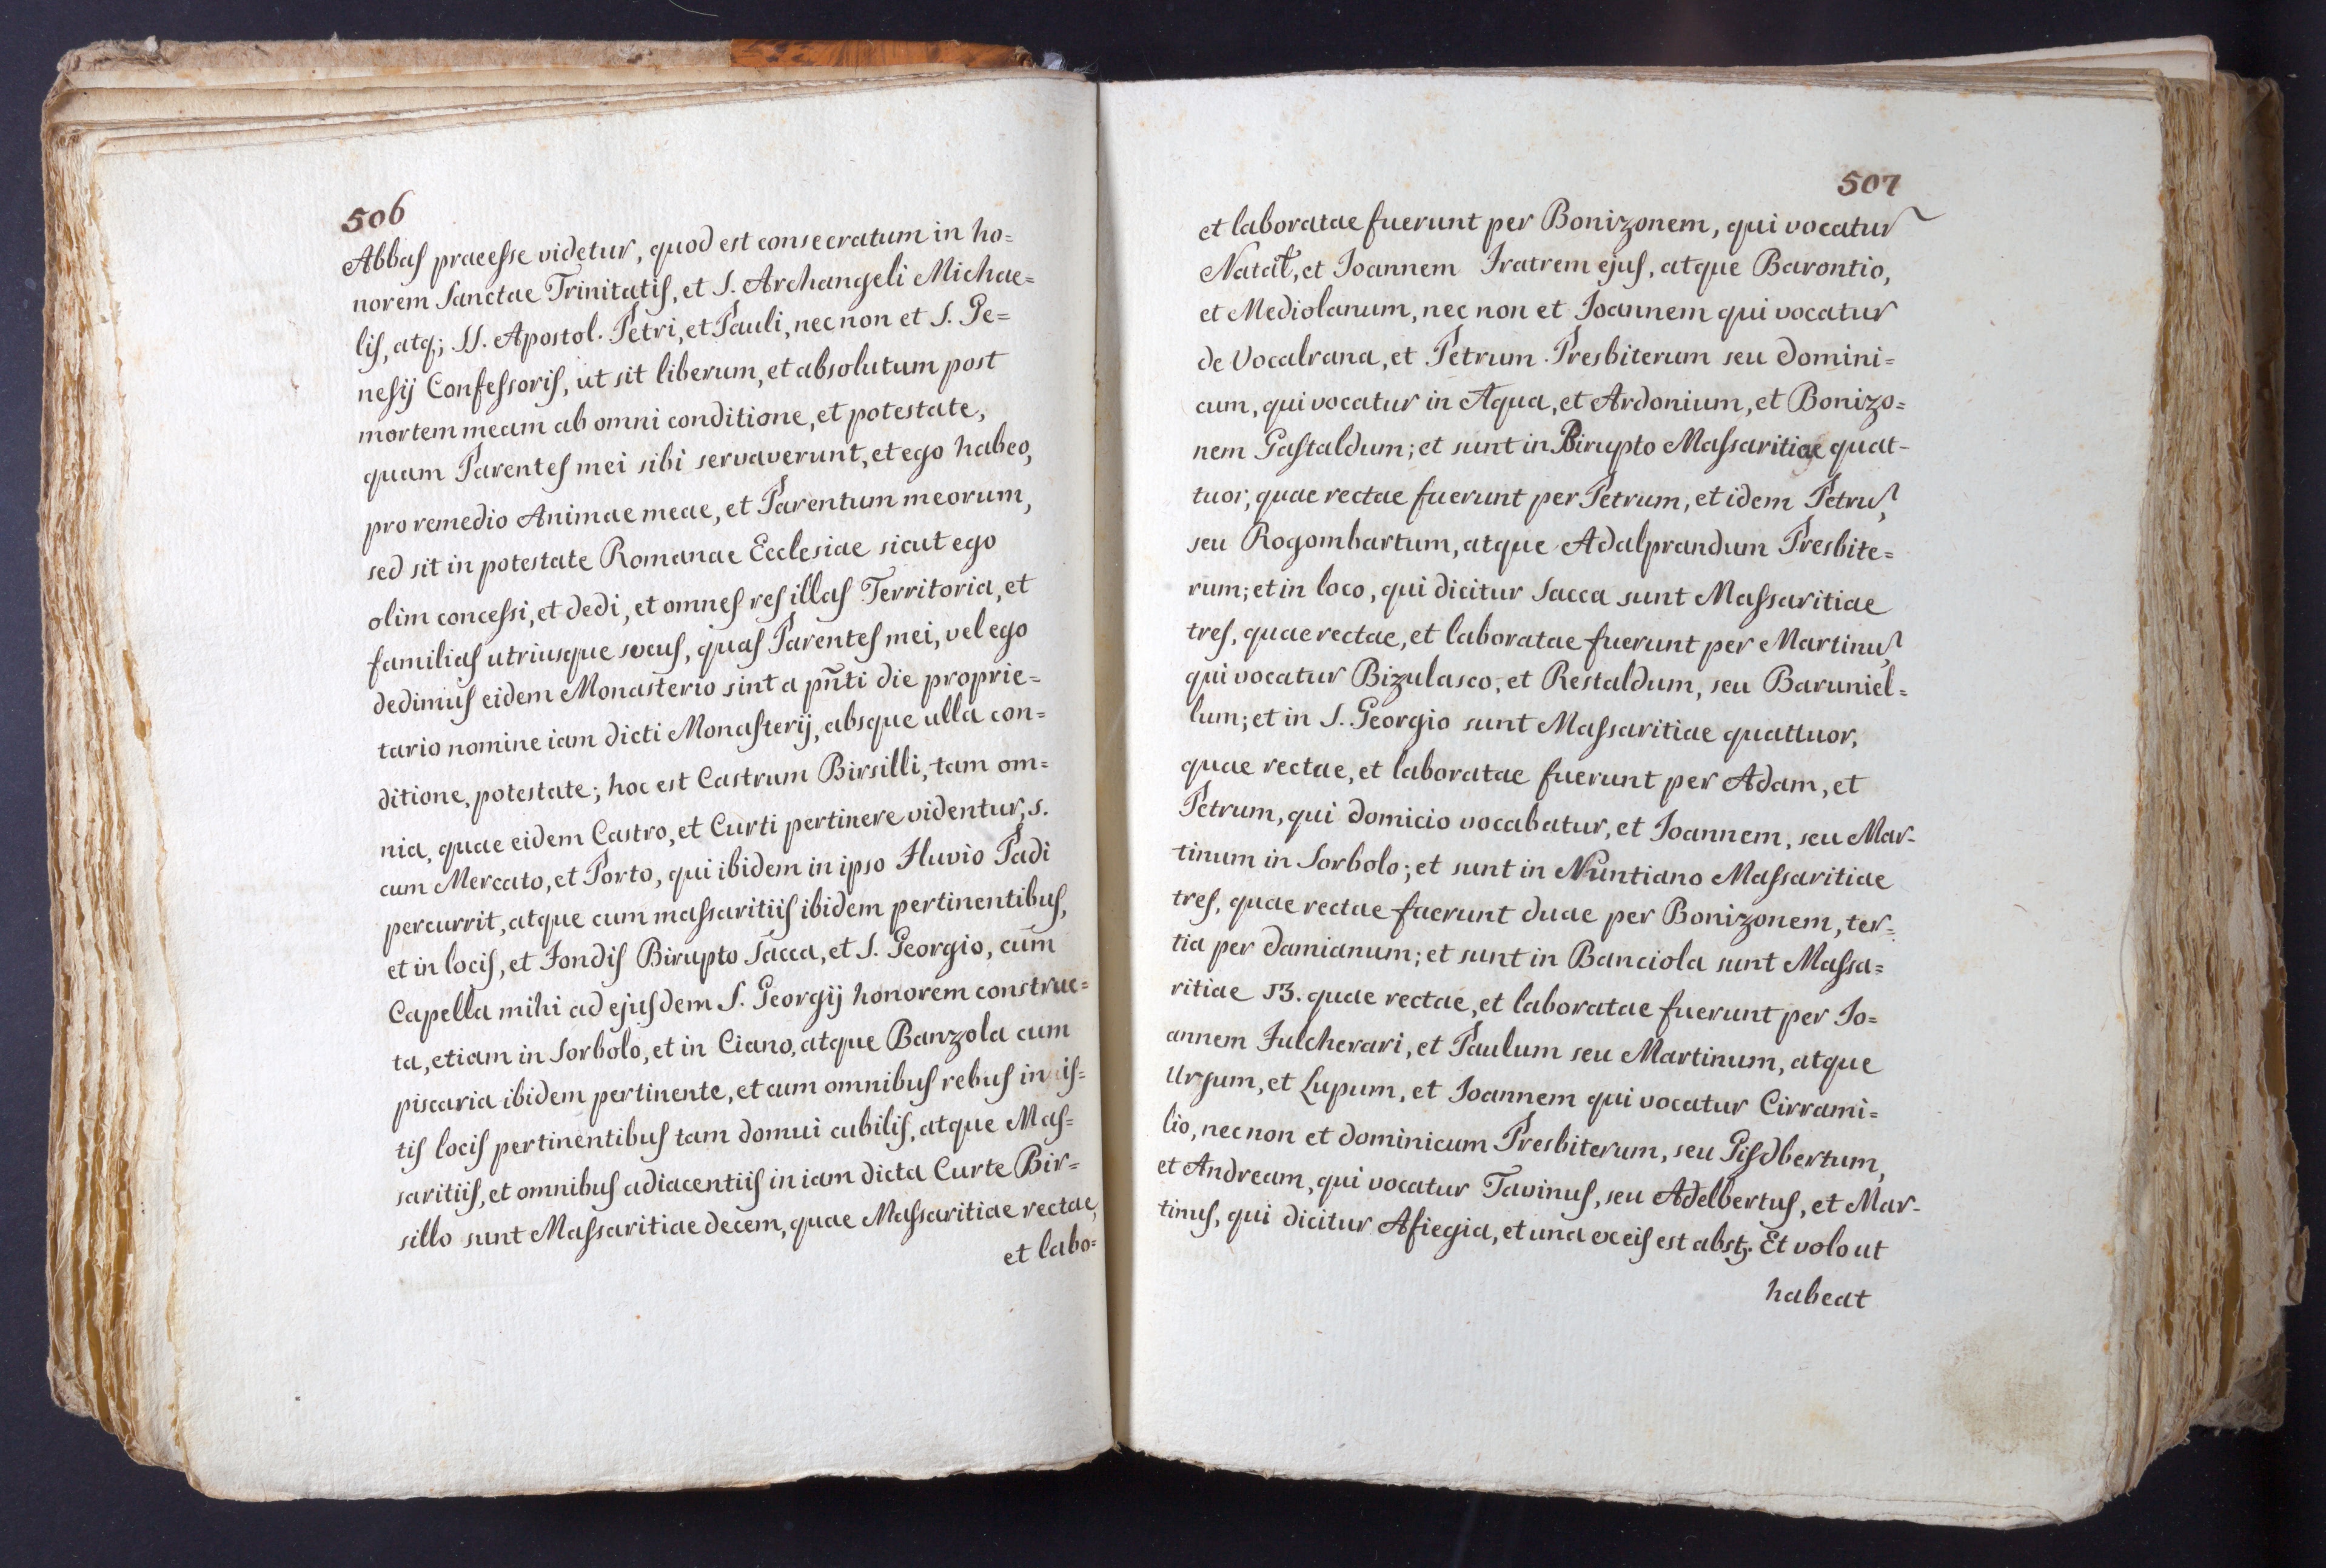 506
Abbas praeesse videtur, quod est consecratum in ho=
norem Sanctae Trinitatis, et S. Archangeli Michae=
lis, atq; SS. Apostol. Petri, et Pauli, nec non et S. Ge=
nesij Confessoris, ut sit liberum, et absolutum post
mortem meam ab omni conditione, et potestate,
quam Parentes mei sibi servaverunt, et ego habeo,
pro remedio Animae meae, et Parentum meorum,
sed sit in potestate Romanae Ecclesiae sicut ego
olim concessi, et dedi, et omnes res illas Territoria, et
familias utriusque sexus, quas Parentes mei, vel ego
dedimus eidem Monasterio sint a pñti die proprie=
tario nomine iam dicti Monasterij, absque ulla con=
ditione, potestate; hoc est Castrum Birsilli, tam om=
nia, quae eidem Castro, et Curti pertinere videntur, s.
cum Mercato, et Porto, qui ibidem in ipso Fluvio Padi
percurrit, atque cum massaritiis ibidem pertinentibus,
et in locis, et Fondis Birupto Sacca, et S. Georgio, cum
Capella mihi ad ejusdem S. Georgij honorem construc=
ta, etiam in Sorbolo, et in Ciano, atque Banzola cum
piscaria ibidem pertinente, et cum omnibus rebus in is=
tis locis pertinentibus tam domui cubilis, atque Mas=
saritiis, et omnibus adiacentiis in iam dicta Curte Bir=
sillo sunt Massaritiae decem, quae Massaritiae rectae,
et labo=
507
et laboratae fuerunt per Bonizonem, qui vocatur
Natal, et Joannem Fratrem ejus, atque Barontio,
et Mediolanum, nec non et Joannem qui vocatur
de Vocalrana, et Petrum Presbiterum seu Domini=
cum, qui vocatur in Aqua, et Ardonium, et Bonizo=
nem Gastaldum; et sunt in Birupto Massaritiae quat-
tuor, quae rectae fuerunt per Petrum, et idem Petrus,
seu Rogombartum, atque Adalprandum Presbite=
rum; et in loco, qui dicitur Sacca sunt Massaritiae
tres, quae rectae, et laboratae fuerunt per Martinus
qui vocatur Bizulasco, et Restaldum, seu Baruniel=
lum; et in S. Georgio sunt Massaritiae quattuor,
quae rectae, et laboratae fuerunt per Adam, et
Petrum, qui domicio vocabatur, et Joannem, seu Mar-
tinum in Sorbolo; et sunt in Nuntiano Massaritiae
tres, quae rectae fuerunt duae per Bonizonem, ter=
tia per Damianum; et sunt in Banciola sunt Massa=
ritiae 13. quae rectae, et laboratae fuerunt per Jo=
annem Fulcherari, et Paulum seu Martinum, atque
Ursum, et Lupum, et Joannem qui vocatur Cirrami=
lio, nec non et Dominicum Presbiterum, seu Gisdbertum,
et Andream, qui vocatur Tavinus, seu Adelbertus, et Mar-
tinus, qui dicitur Afiegia, et una ex eis est abstz. Et volo ut
habeat